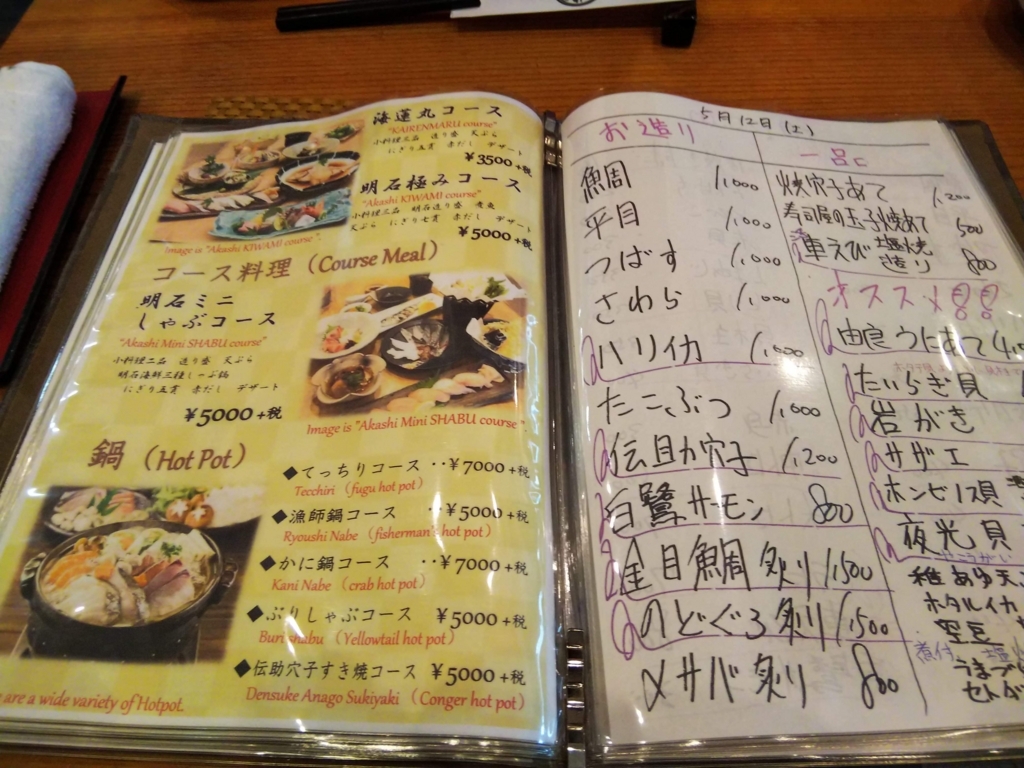 海蓮丸コース
"KAIRENMARU course"
小料理三品 造り盛 天ぷら
にぎり五貫 赤だし デザート
¥3500+税
明石極みコース
"Akashi KIWAMI course"
小料理三品 明石造り盛 煮魚
天ぷら にぎり七貫 赤だし デザート
¥5000+税
Image is "Akashi KIWAMI course".
コース料理 (Course Meal)
明石ミニ
しゃぶコース
"Akashi Mini SHABU course"
小料理二品 造り盛 天ぷら
明石海鮮三種しゃぶ鍋
にぎり五貫 赤だし デザート
¥5000+税
Image is "Akashi Mini SHABU course".
鍋 (Hot Pot)
◆てっちりコース ‥¥7000+税
Tecchiri (fugu hot pot)
◆漁師鍋コース ‥¥5000+税
Ryoushi Nabe (fisherman's hot pot)
◆かに鍋コース ‥¥7000+税
Kani Nabe (crab hot pot)
◆ぶりしゃぶコース ¥5000+税
Buri shabu (Yellowtail hot pot)
◆伝助穴子すき焼コース ¥5000+税
Densuke Anago Sukiyaki (Conger hot pot)
are a wide variety of Hotpot.
5月12日(土)
お造り
鯛 1,000
平目 1,000
つばす 1,000
さわら 1,000
ハリイカ 1,000
たこぶつ 1,000
伝助穴子 1,200
白鷺サーモン 800
金目鯛炙り 1,500
のどぐろ炙り 1,500
〆サバ炙り 800
一品
焼穴子あて 1,200
寿司屋の玉子焼あて 500
車えび 塩焼 造り 800
オススメ!!
由良うにあて
たいらぎ貝
岩がき
サザエ
ホンビノス貝
夜光貝
稚あゆ天ぷ
ホタルイカ
空豆
煮付 塩
うまづら